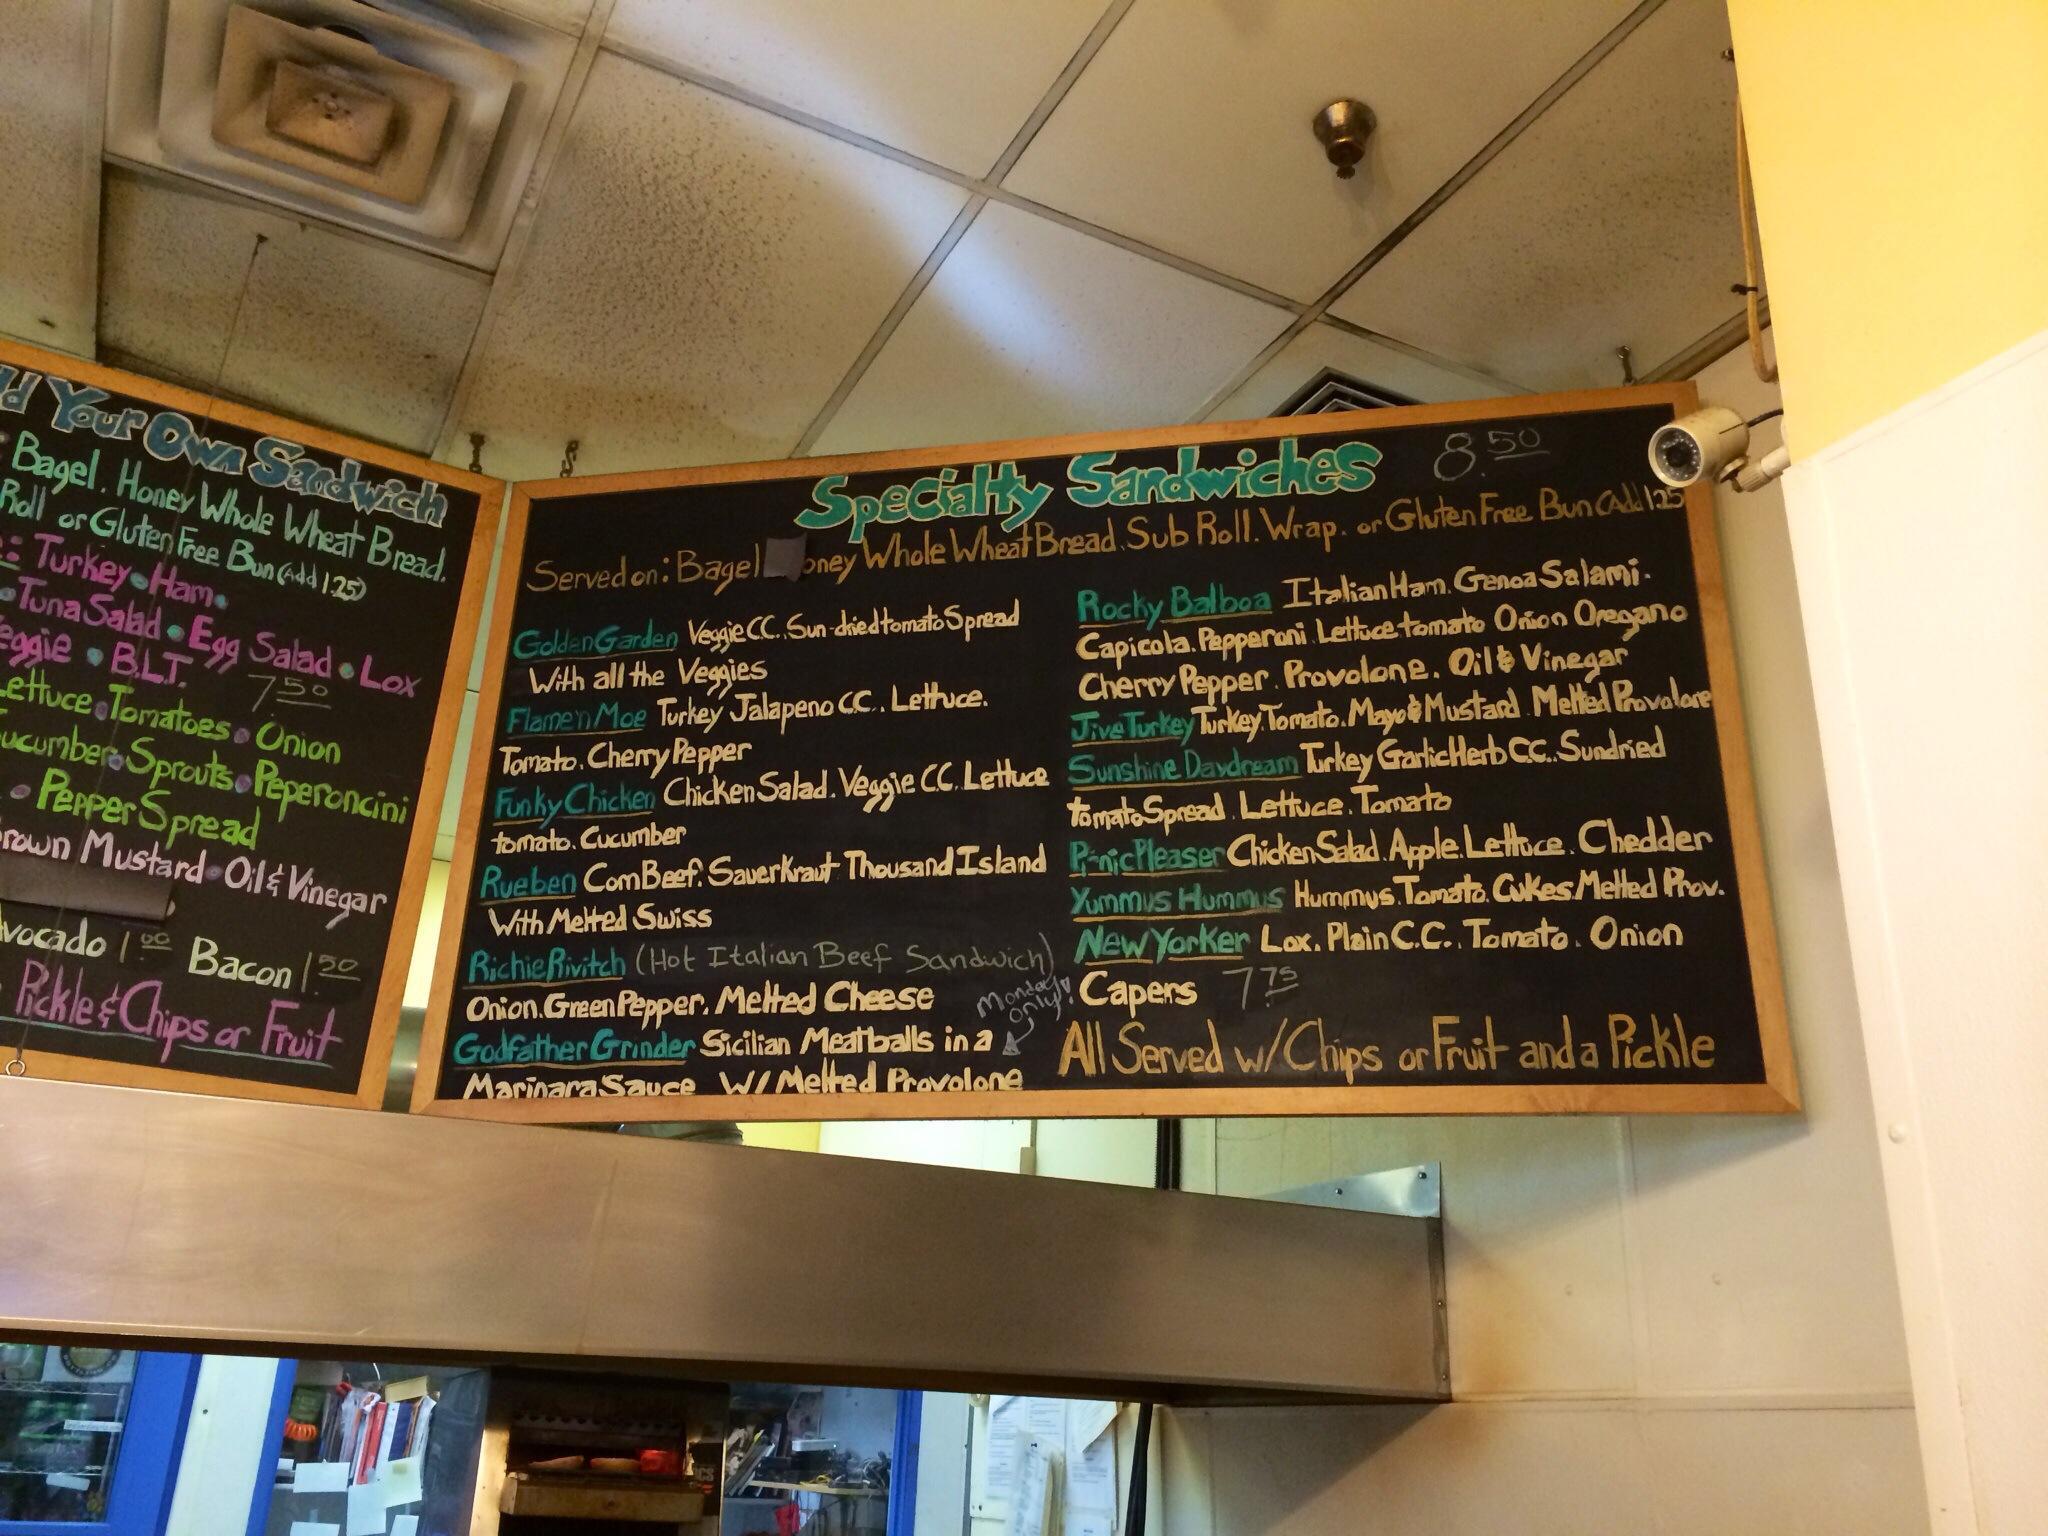 Your Own Sandwich
Bagel. Honey Whole Wheat Bread.
Roll or Gluten Free Bun (Add 1.25)
Turkey • Ham •
• Tuna Salad • Egg Salad • Lox
• B.L.T. 7.50
Lettuce • Tomatoes • Onion
Cucumber • Sprouts • Peperoncini
• Pepper Spread
Mustard • Oil & Vinegar
Avocado 1.00 Bacon 1.50
Pickle & Chips or Fruit
Specialty Sandwiches 8.50
Served on: Bagel oney Whole Wheat Bread. Sub Roll. Wrap. or Gluten Free Bun (Add 1.25
Golden Garden Veggie C.C.. Sun-dried tomato Spread
With all the Veggies
Flame'n Moe Turkey Jalapeno C.C.. Lettuce.
Tomato. Cherry Pepper
Funky Chicken Chicken Salad. Veggie C.C. Lettuce
tomato. Cucumber
Rueben Corn Beef. Sauerkraut Thousand Island
With Melted Swiss
Richie Rivitch (Hot Italian Beef Sandwich)
Onion. Green Pepper. Melted Cheese
Monday only!
Godfather Grinder Sicilian Meatballs in a
Marinara Sauce W/ Melted Provolone
Rocky Balboa Italian Ham. Genoa Salami.
Capicola. Pepperoni. Lettuce tomato Onion Oregano
Cherry Pepper. Provolone. Oil & Vinegar
Jive Turkey Turkey. Tomato. Mayo & Mustard. Melted Provolone
Sunshine Daydream Turkey Garlic Herb C.C.. Sundried
tomato Spread. Lettuce. Tomato
P-nic Pleaser Chicken Salad. Apple. Lettuce. Chedder
Yummus Hummus Hummus. Tomato. Cukes. Melted Prov.
New Yorker Lox. Plain C.C.. Tomato. Onion
Capers 7.75
All Served w/ Chips or Fruit and a Pickle